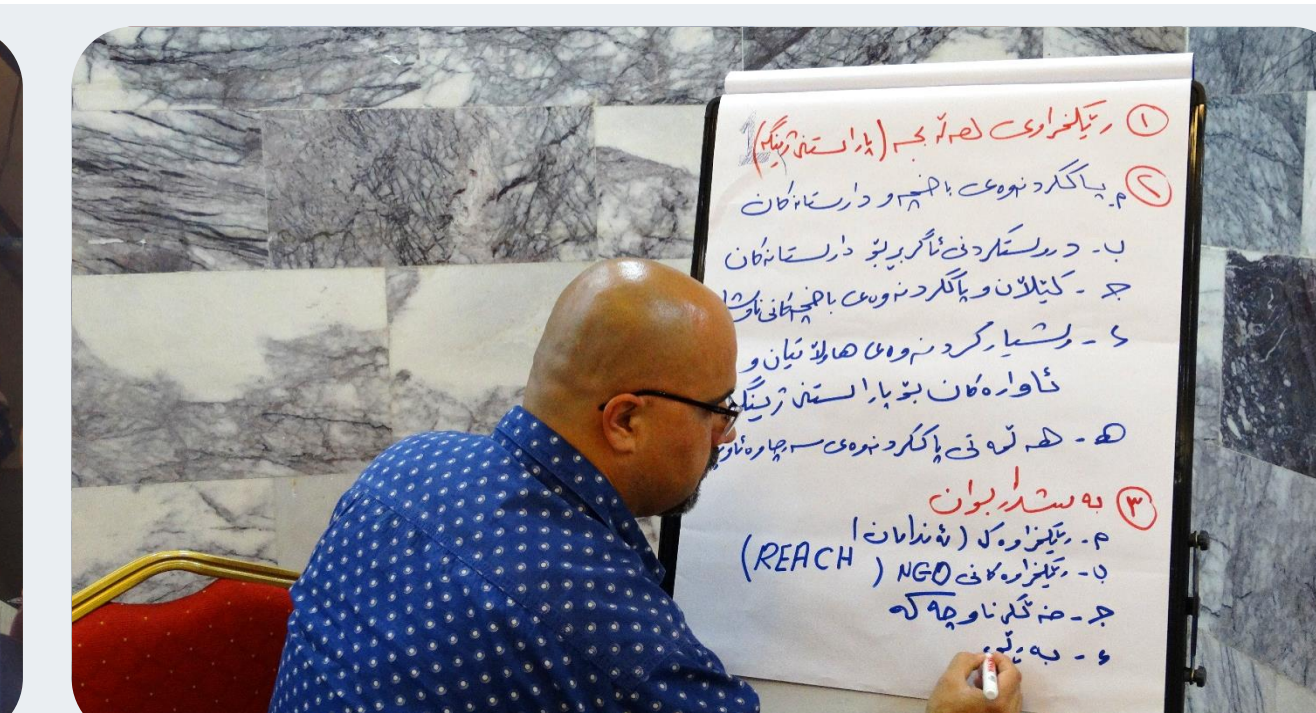 ١ ریکخراوی هەلەبجە (پاراستنی ژینگە)
٢ م. پاککردنەوەی باخچە و دارستانەکان
ب- دروستکردنی ئاگربر بۆ دارستانەکان
جـ - کێلان و پاککردنەوەی باخچەکانی ناوشا
ء - وشیارکردنەوەی هاولاتیان و
ئاوارەکان بۆ پاراستنی ژینگە
هـ - هەلمەتی پاککردنەوەی سەرچاوە
٣ بەشداربوان
م. ریکخراوەکە (ئەندامان)
ب- ریکخراوەکانی NGO (REACH)
جـ - خەلکی ناوچەکە
ء - بەریو